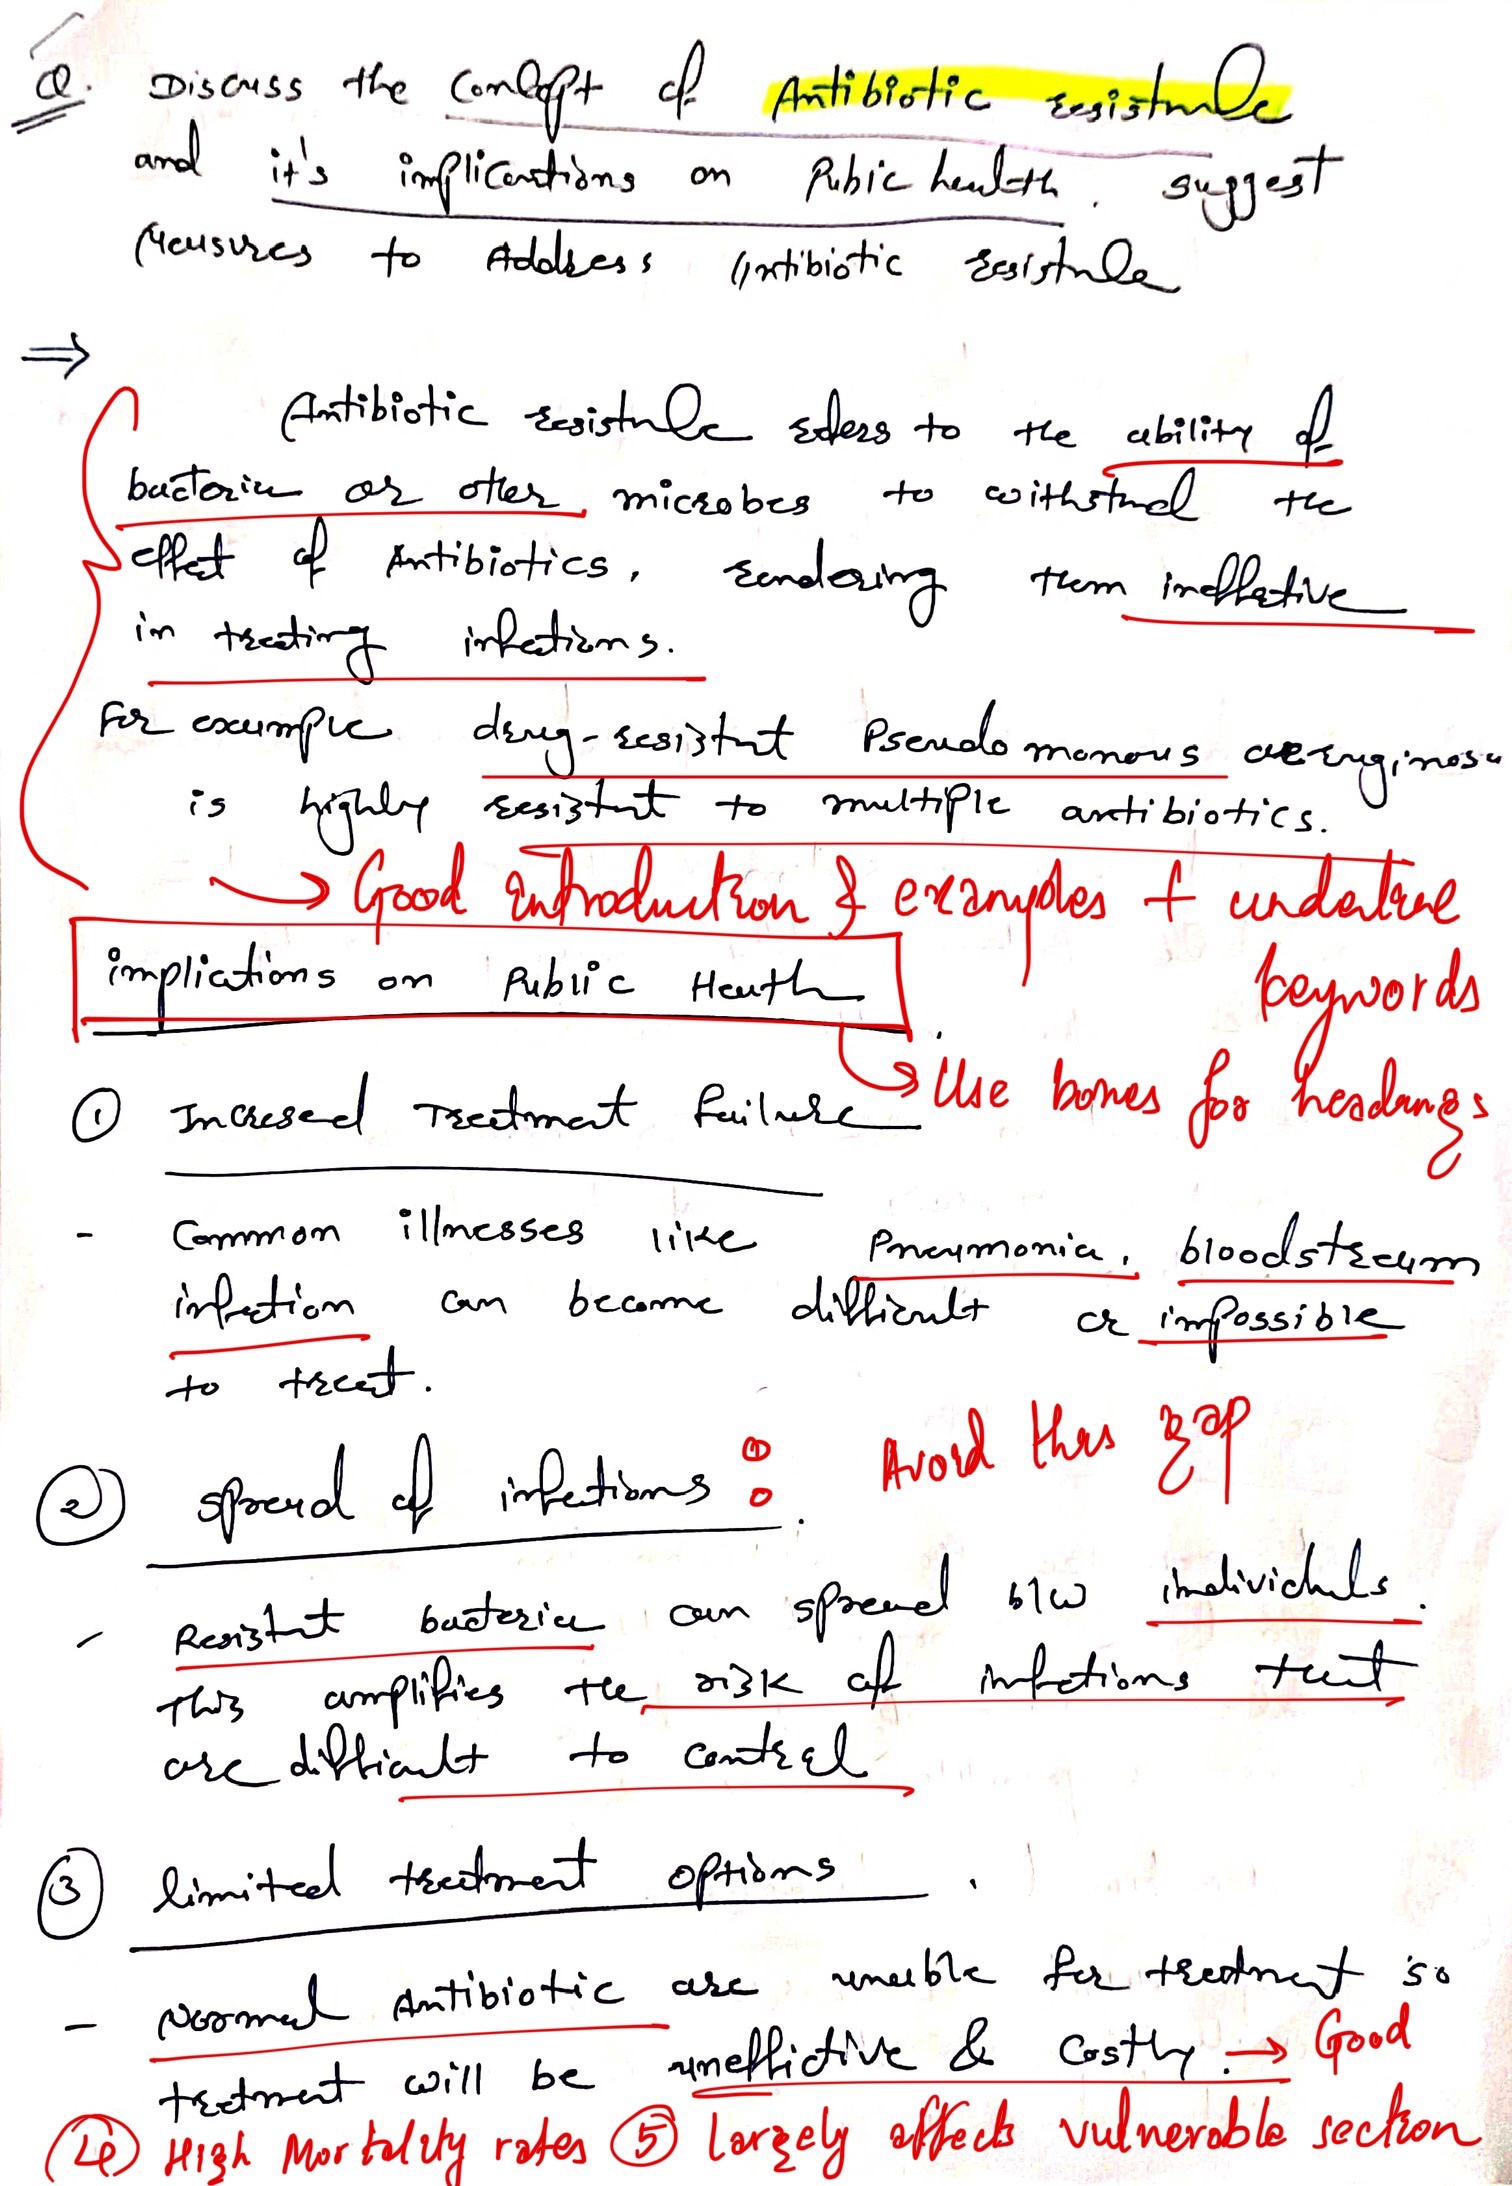 Q. Discuss the Concept of Antibiotic resistance
and it's implications on Pubic health. suggest
Measures to Address Antibiotic resistance
⇒
Antibiotic resistance refers to the ability of
bacteria or other microbes to withstand the
effect of Antibiotics, rendering them ineffective
in treating infections.
For example drug-resistant Pseudomonous aeruginosa
is highly resistant to multiple antibiotics.
→ Good introduction & examples + underline
keywords
implications on Public Health
→ Use boxes for headings
① Incresed Treatment failure
- Common illnesses like Pneumonia, bloodstream
infection can become difficult or impossible
to treat.
② spread of infections : Avoid this gap
- Resistant bacteria can spread b/w individuls.
This amplifies the risk of infections that
are difficult to control
③ limited treatment options.
- Normal Antibiotic are uneble for treatment so
treatment will be uneffictive & Costly. → Good
④ High Mortality rates ⑤ largely affects vulnerable section